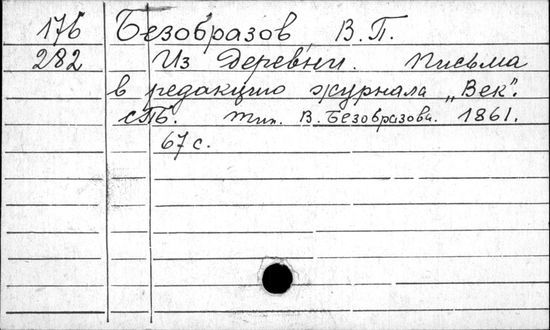 176 Безобразов В.П.
282 Из деревни. Письма
в редакцию журнала „Век".
СПб. Тип. В. Безобразова. 1861.
67 с.